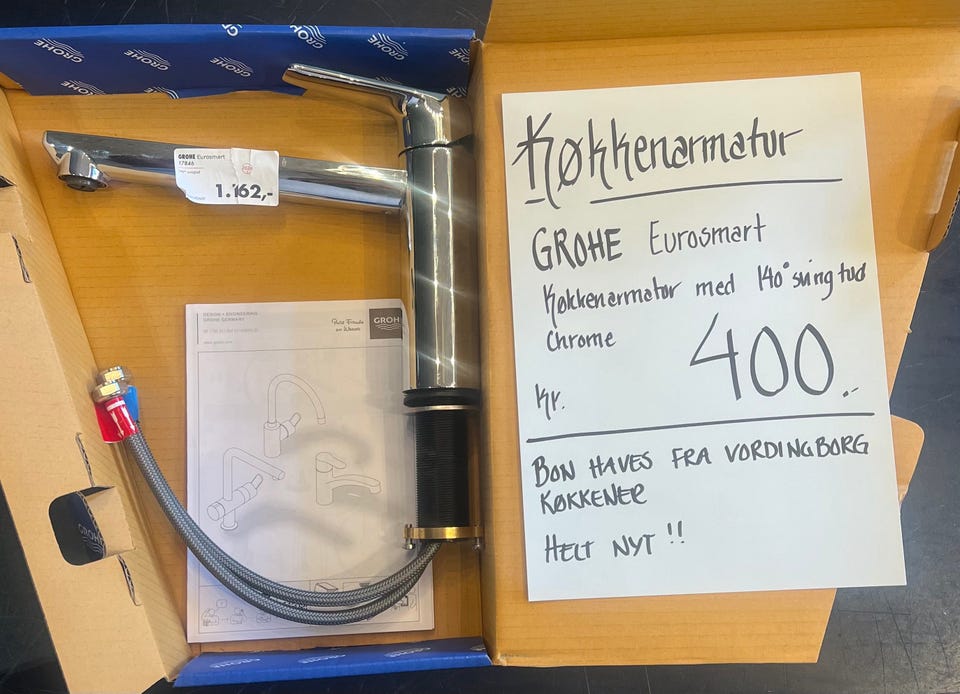 GROHE
GROHE
GROHE
GROHE
GROHE
GROHE Eurosmart
1.162,-
DESIGN + ENGINEERING
GROHE GERMANY
Pure Freude
an Wasser
GROHE
Køkkenarmatur
GROHE Eurosmart
Køkkenarmatur med 140° svingtud
Chrome
Kr. 400.-
BON HAVES FRA VORDINGBORG
KØKKENER
HELT NYT !!
GROHE
GROHE
GROHE
GROHE